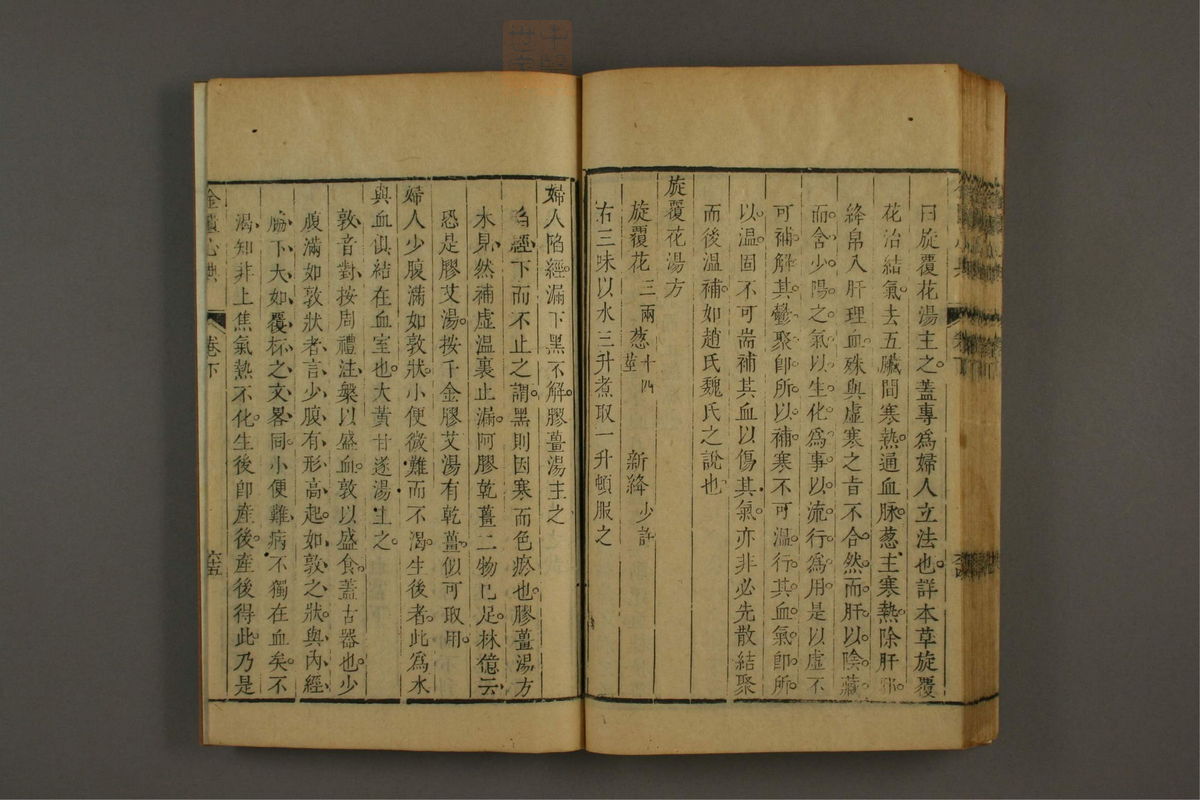 曰旋覆花湯主之蓋專為婦人立法也詳本草旋覆
花治結氣去五臟間寒熱通血脉葱主寒熱除肝邪
絳帛入肝理血殊與虛寒之旨不合然而肝以陰藏
而舍少陽之氣以生化為事以流行為用是以虛不
可補解其鬱聚即所以補寒不可溫行其血氣即所
以溫固不可耑補其血以傷其氣亦非必先散結聚
而後溫補如趙氏魏氏之說也
旋覆花湯方
旋覆花三兩 葱十四莖 新絳少許
右三味以水三升煮取一升頓服之
婦人陷經漏下黑不解膠薑湯主之
陷經下而不止之謂黑則因寒而色瘀也膠薑湯方
未見然補虛溫裏止漏阿膠乾薑二物已足林億云
恐是膠艾湯按千金膠艾湯有乾薑似可取用
婦人少腹滿如敦狀小便微難而不渴生後者此為水
與血俱結在血室也大黃甘遂湯主之
敦音對按周禮注槃以盛血敦以盛食蓋古器也少
腹滿如敦狀者言少腹有形高起如敦之狀與內經
脇下大如覆杯之文畧同小便難病不獨在血矣不
渴知非上焦氣熱不化生後即產後產後得此乃是
金匱心典 卷下 六五